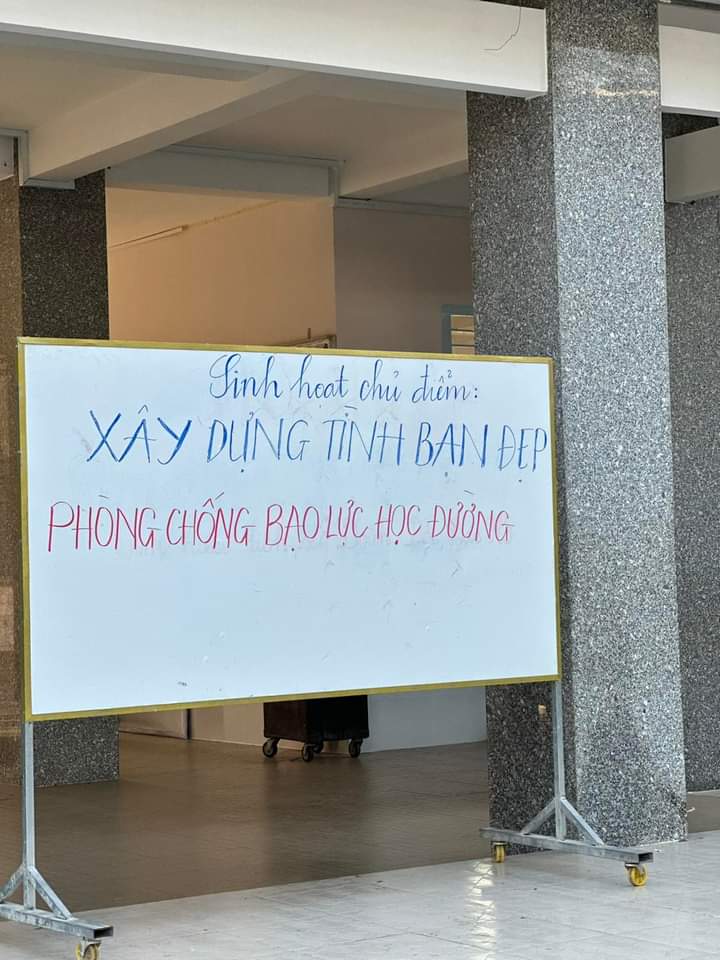 Sinh hoạt chủ điểm:
XÂY DỰNG TÌNH BẠN ĐẸP
PHÒNG CHỐNG BẠO LỰC HỌC ĐƯỜNG